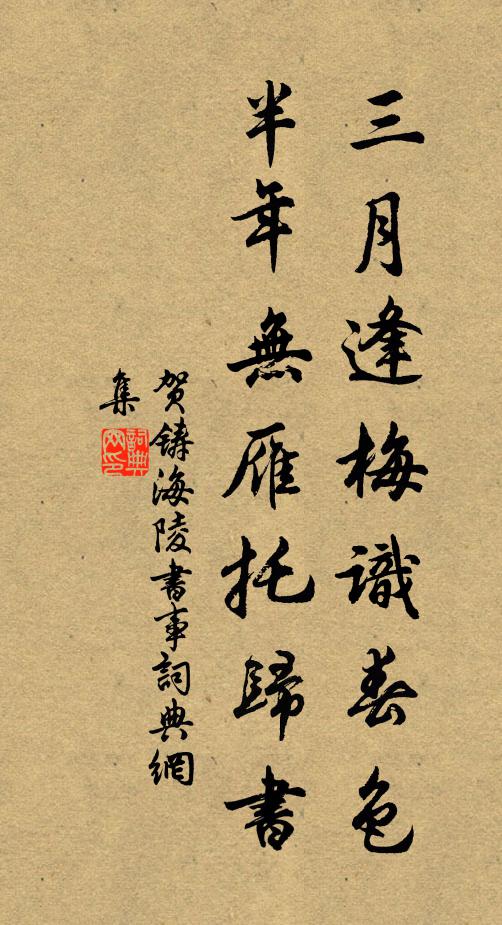 三月逢梅識春色
半年無雁托歸書
贺铸海陵書事詞典網
集
詞典网印